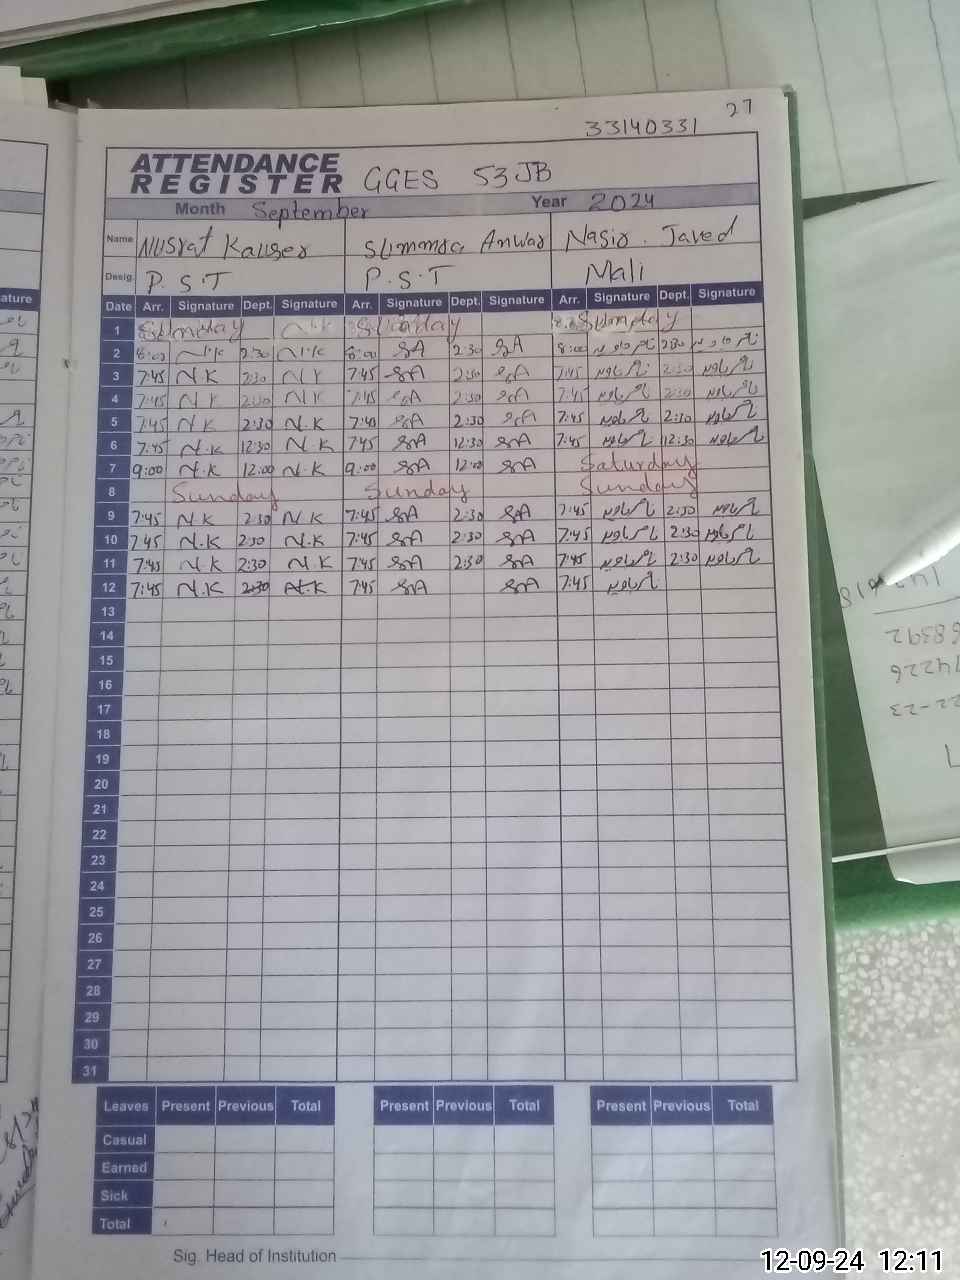 27
33140331
ATTENDANCE
REGISTER GGES 53JB
Month September Year 2024
Name Nusrat Kauser Summra Anwar Nasir. Javed
Desig. P.S.T P.S.T Mali
Date Arr. Signature Dept. Signature Arr. Signature Dept. Signature Arr. Signature Dept. Signature
1 Sunday Sunday Sunday
2 8:00 N.K 2:30 N.K 8:00 SA 2:30 SA 8:00 2:30
3 7:45 N K 2:30 N K 7:45 SA 2:30 SA 7:45 2:30
4 7:45 N K 2:30 N K 7:45 SA 2:30 SA 7:45 2:30
5 7:45 N K 2:30 N.K 7:45 SA 2:30 SA 7:45 2:30
6 7:45 N.K 12:30 N.K 7:45 SA 12:30 SA 7:45 12:30
7 9:00 N.K 12:00 N.K 9:00 SA 12:00 SA Saturday
8 Sunday Sunday Sunday
9 7:45 N K 2:30 N K 7:45 SA 2:30 SA 7:45 2:30
10 7:45 N.K 2:30 N.K 7:45 SA 2:30 SA 7:45 2:30
11 7:45 N.K 2:30 N.K 7:45 SA 2:30 SA 7:45 2:30
12 7:45 N.K 2:30 N.K 7:45 SA SA 7:45
13
14
15
16
17
18
19
20
21
22
23
24
25
26
27
28
29
30
31
Leaves Present Previous Total Present Previous Total Present Previous Total
Casual
Earned
Sick
Total
Sig. Head of Institution
12-09-24 12:11